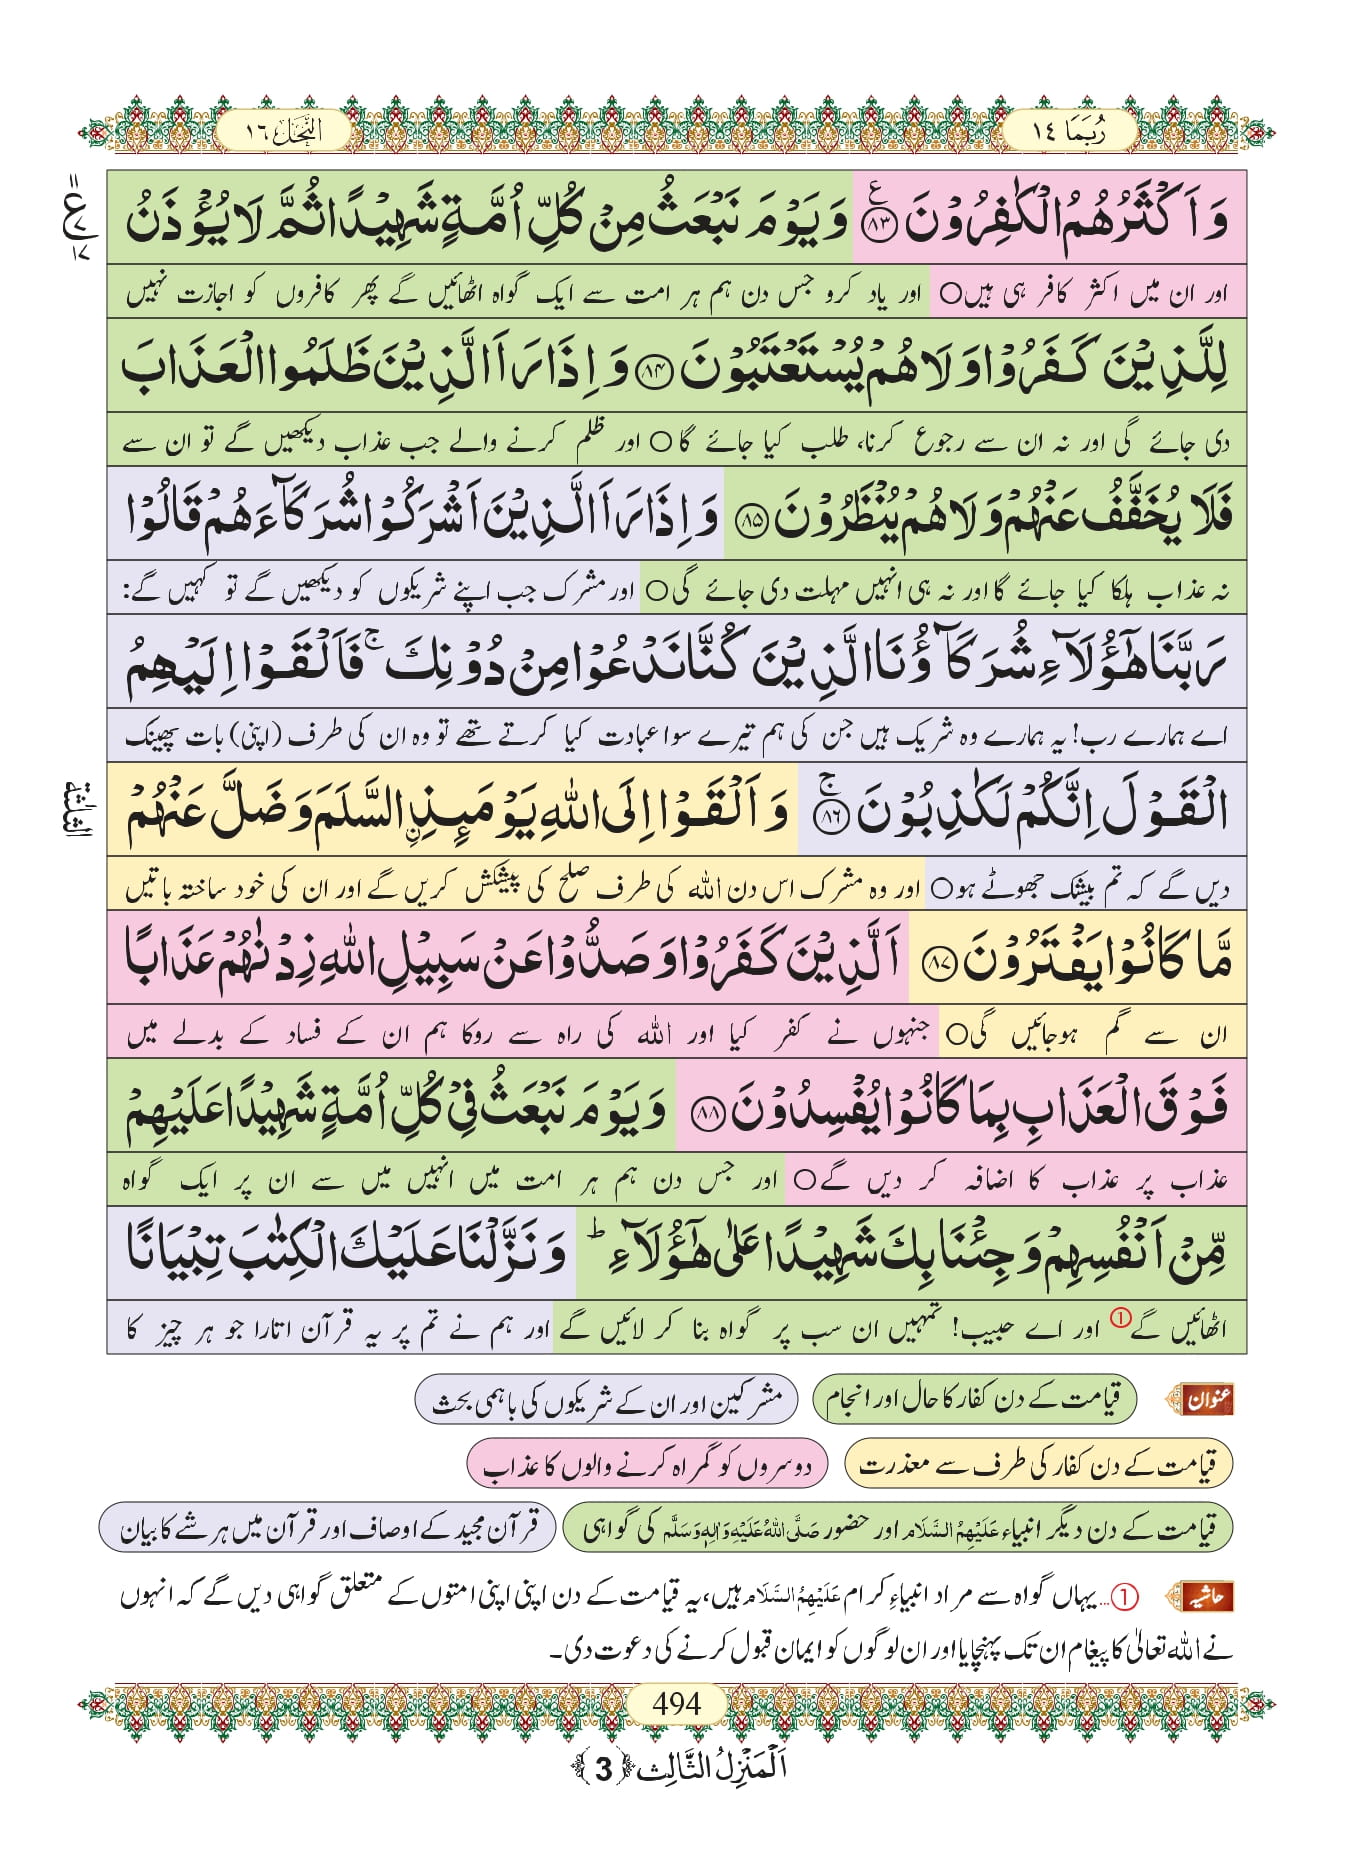 رُبَمَا ١٤
النَّحْل ١٦
وَاَكْثَرُهُمُ الْكٰفِرُوْنَ ﴿۸۳﴾ وَيَوْمَ نَبْعَثُ مِنْ كُلِّ اُمَّةٍ شَهِيْدًا ثُمَّ لَا يُؤْذَنُ
اور ان میں اکثر کافر ہی ہیں○ اور یاد کرو جس دن ہم ہر امت سے ایک گواہ اٹھائیں گے پھر کافروں کو اجازت نہیں
لِلَّذِيْنَ كَفَرُوْا وَلَا هُمْ يُسْتَعْتَبُوْنَ ﴿۸۴﴾ وَاِذَا رَاَ الَّذِيْنَ ظَلَمُوا الْعَذَابَ
دی جائے گی اور نہ ان سے رجوع کرنا، طلب کیا جائے گا○ اور ظلم کرنے والے جب عذاب دیکھیں گے تو ان سے
فَلَا يُخَفَّفُ عَنْهُمْ وَلَا هُمْ يُنْظَرُوْنَ ﴿۸۵﴾ وَاِذَا رَاَ الَّذِيْنَ اَشْرَكُوْا شُرَكَآءَهُمْ قَالُوْا
نہ عذاب ہلکا کیا جائے گا اور نہ ہی انہیں مہلت دی جائے گی○ اور مشرک جب اپنے شریکوں کو دیکھیں گے تو کہیں گے:
رَبَّنَا هٰٓؤُلَآءِ شُرَكَآؤُنَا الَّذِيْنَ كُنَّا نَدْعُوْا مِنْ دُوْنِكَ ۚ فَاَلْقَوْا اِلَيْهِمُ
اے ہمارے رب! یہ ہمارے وہ شریک ہیں جن کی ہم تیرے سوا عبادت کیا کرتے تھے تو وہ ان کی طرف (اپنی) بات پھینک
الْقَوْلَ اِنَّكُمْ لَكٰذِبُوْنَ ﴿۸۶﴾ۚ وَاَلْقَوْا اِلَى اللّٰهِ يَوْمَئِذِ ࣙالسَّلَمَ وَضَلَّ عَنْهُمْ
دیں گے کہ تم بیشک جھوٹے ہو○ اور وہ مشرک اس دن اللہ کی طرف صلح کی پیشکش کریں گے اور ان کی خود ساختہ باتیں
مَّا كَانُوْا يَفْتَرُوْنَ ﴿۸۷﴾ اَلَّذِيْنَ كَفَرُوْا وَصَدُّوْا عَنْ سَبِيْلِ اللّٰهِ زِدْنٰهُمْ عَذَابًا
ان سے گم ہوجائیں گی○ جنہوں نے کفر کیا اور اللہ کی راہ سے روکا ہم ان کے فساد کے بدلے میں
فَوْقَ الْعَذَابِ بِمَا كَانُوْا يُفْسِدُوْنَ ﴿۸۸﴾ وَيَوْمَ نَبْعَثُ فِيْ كُلِّ اُمَّةٍ شَهِيْدًا عَلَيْهِمْ
عذاب پر عذاب کا اضافہ کر دیں گے○ اور جس دن ہم ہر امت میں انہیں میں سے ان پر ایک گواہ
مِّنْ اَنْفُسِهِمْ وَجِئْنَا بِكَ شَهِيْدًا عَلٰى هٰٓؤُلَآءِ ؕ وَنَزَّلْنَا عَلَيْكَ الْكِتٰبَ تِبْيَانًا
اٹھائیں گے① اور اے حبیب! تمہیں ان سب پر گواہ بنا کر لائیں گے اور ہم نے تم پر یہ قرآن اتارا جو ہر چیز کا
ع ٧ ١٧
الثلثة
عنوان
قیامت کے دن کفار کا حال اور انجام
مشرکین اور ان کے شریکوں کی باہمی بحث
قیامت کے دن کفار کی طرف سے معذرت
دوسروں کو گمراہ کرنے والوں کا عذاب
قیامت کے دن دیگر انبیاء عَلَیْہِمُ السَّلَام اور حضور صَلَّی اللہُ عَلَیْہِ وَاٰلِہٖ وَسَلَّم کی گواہی
قرآنِ مجید کے اوصاف اور قرآن میں ہر شے کا بیان
حاشیہ
①...یہاں گواہ سے مراد انبیاءِ کرام عَلَیْہِمُ السَّلَام ہیں، یہ قیامت کے دن اپنی اپنی امتوں کے متعلق گواہی دیں گے کہ انہوں
نے اللہ تعالیٰ کا پیغام ان تک پہنچایا اور ان لوگوں کو ایمان قبول کرنے کی دعوت دی۔
494
اَلْمَنْزِلُ الثَّالِث ﴿3﴾